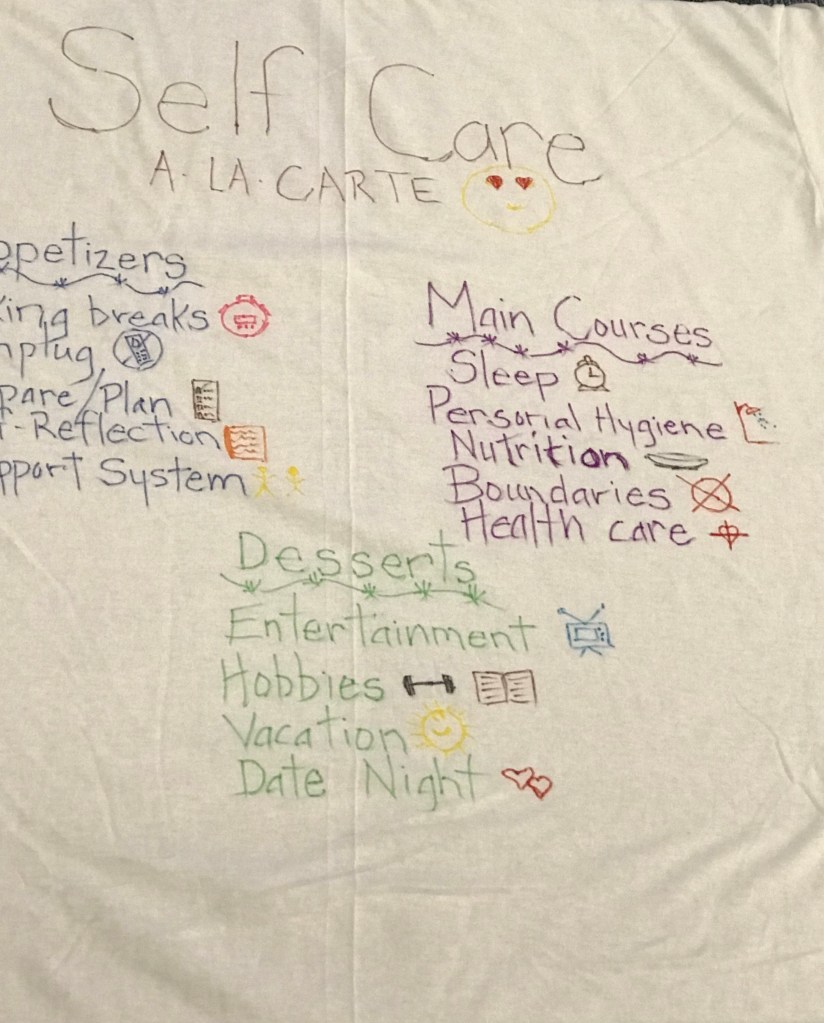 Self Care
A·LA·CARTE
ppetizers
king breaks
nplug
pare/Plan
-Reflection
pport System
Main Courses
Sleep
Personal Hygiene
Nutrition
Boundaries
Health care
Desserts
Entertainment
Hobbies
Vacation
Date Night